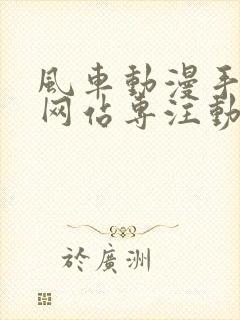 風車動漫手
网佔專注動
於廣洲